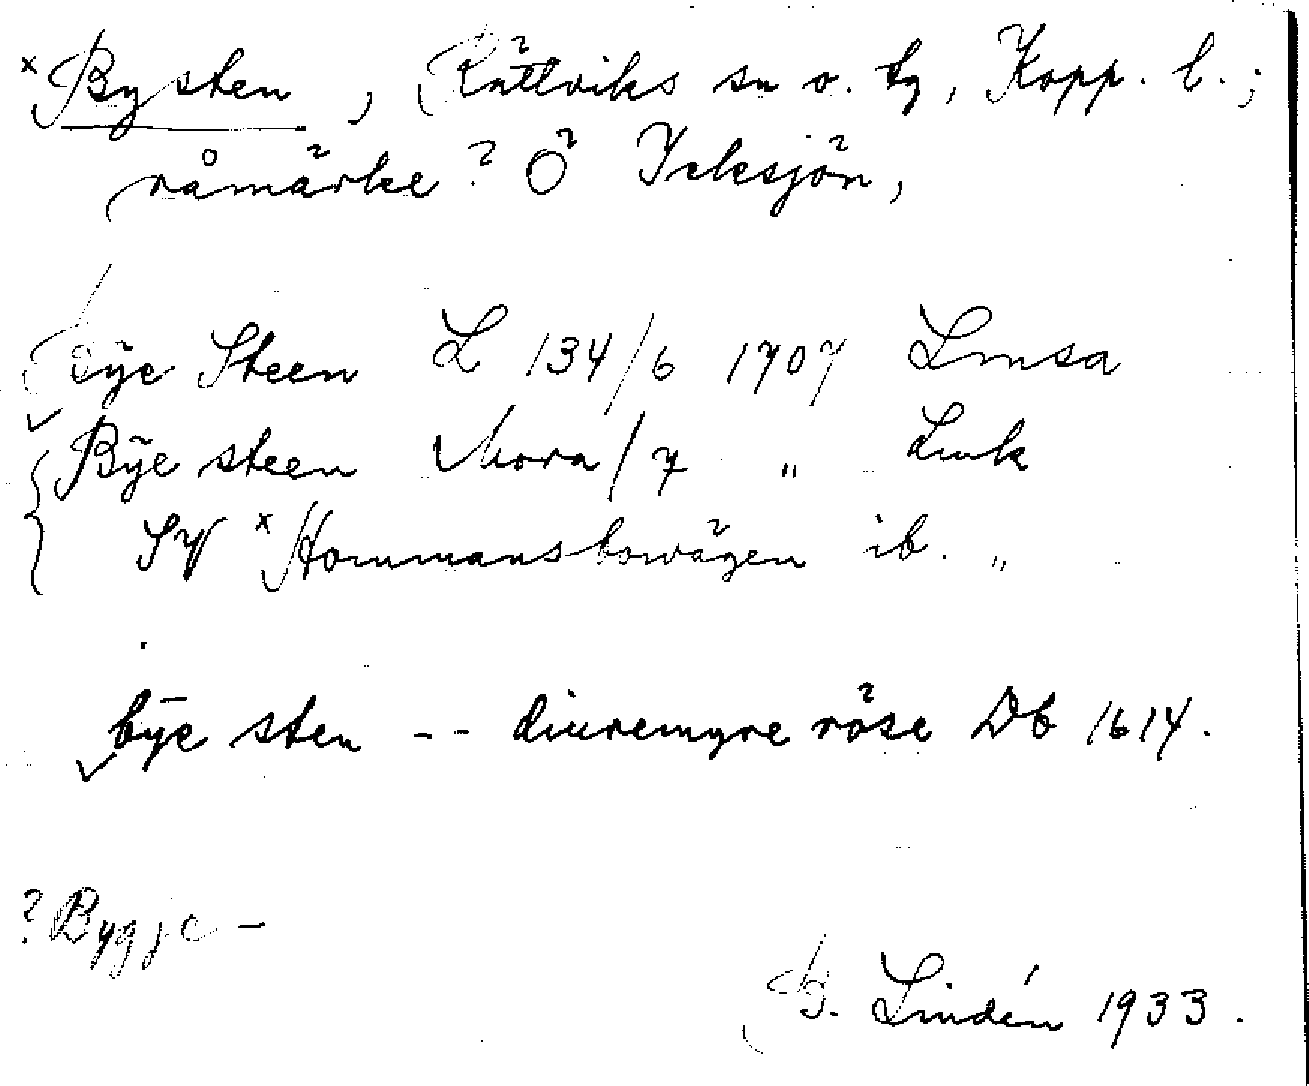 x Bysten, Rättviks sn o. tg, Kopp. l.;
råmärke? Ö Icksjön,
Bÿe Steen L 134/6 1707 Lmsa
Bÿe steen Mora/7 " Lmk
SW x Hommansbowägen ib. "
bÿe sten -- diuremyre röse Db 1614.
? Bygge-
G. Lindén 1933.